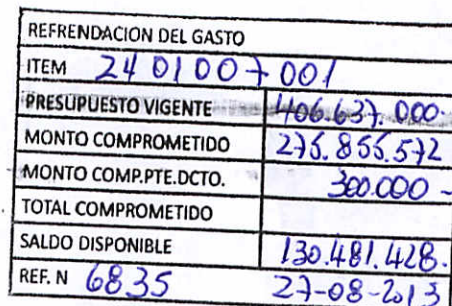 REFRENDACION DEL GASTO
ITEM 24 01 007 001
PRESUPUESTO VIGENTE 406.637.000.
MONTO COMPROMETIDO 275.855.572
MONTO COMP.PTE.DCTO. 300.000 -
TOTAL COMPROMETIDO
SALDO DISPONIBLE 130.481.428.
REF. N 6835 27-08-2013